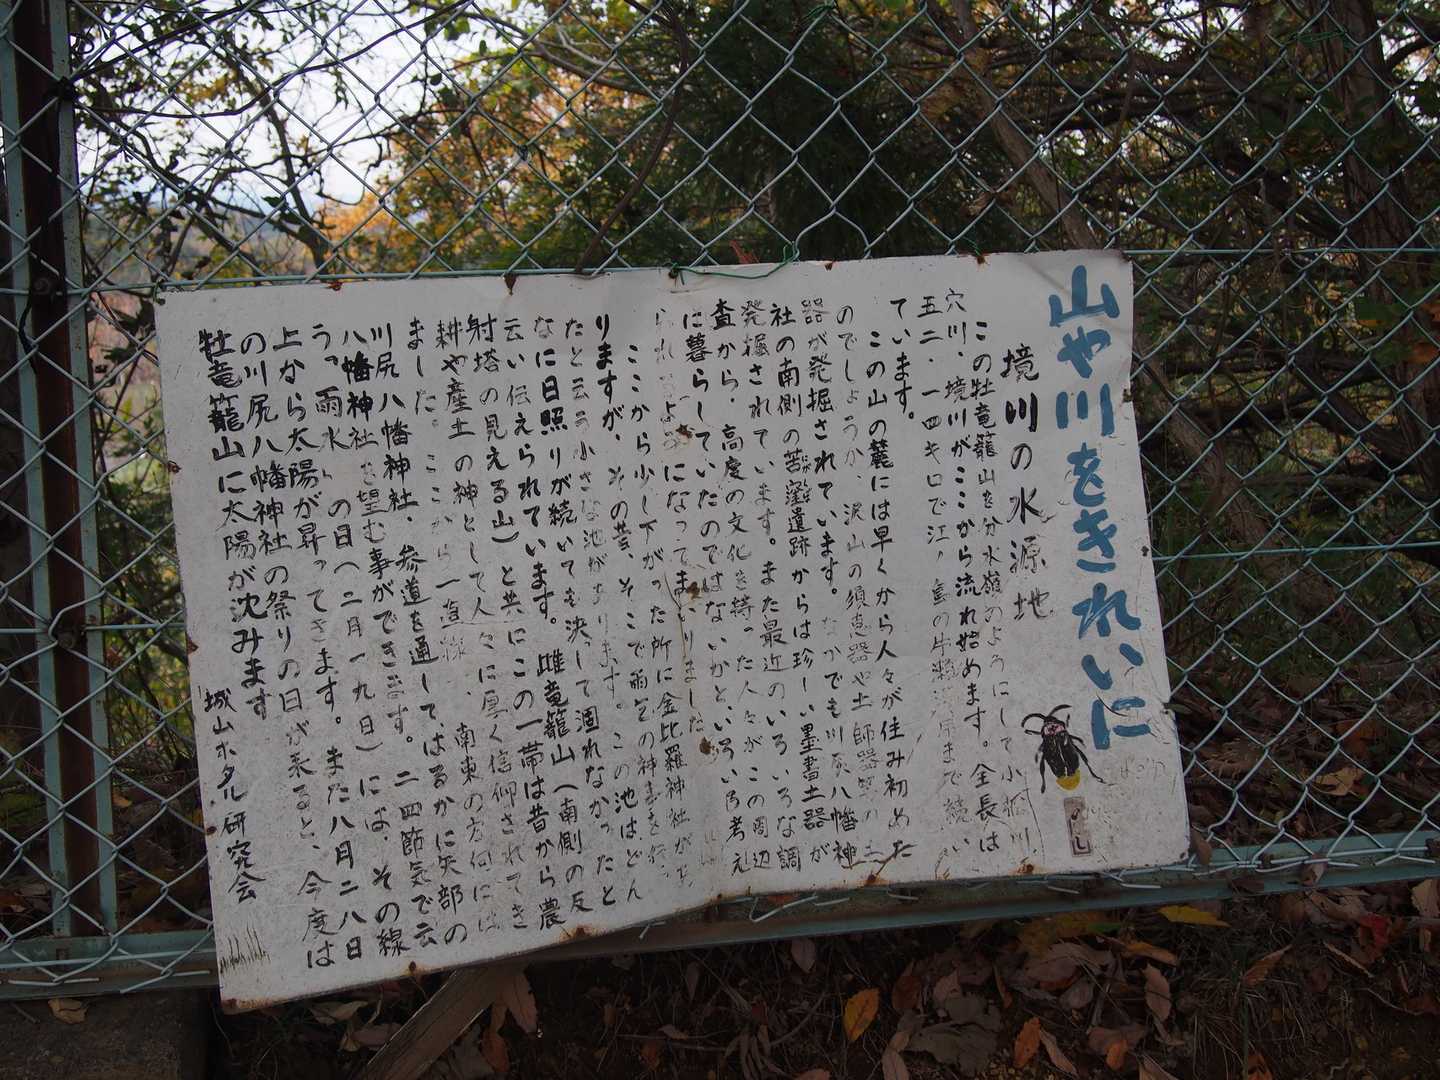 山や川をきれいに
境川の水源地
この牡竜籠山を分水嶺のようにして小松川
穴川、境川がここから流れ始めます。全長は
五二、一四キロで江ノ島の片瀬海岸まで続い
ています。
この山の麓には早くから人々が住み初めた
のでしょうか、沢山の須恵器や土師器等の土
器が発掘されています。なかでも川尻八幡神
社の南側の苦窪遺跡からは珍しい墨書土器が
発掘されています。また最近のいろいろな調
査から、高度の文化を持った人々がこの周辺
に暮らしていたのではないかと、いろいろ考え
られるようになってまいりました
ここから少し下がった所に金比羅神社が
りますが、その昔、そこで雨乞の神事を行
たと云う小さな池があります。この池はどん
なに日照りが続いても決して涸れなかったと
云い伝えられています。雌竜籠山（南側の反
射塔の見える山）と共にこの一帯は昔から農
耕や産土の神として人々に厚く信仰されてき
ました。ここから一直線、南東の方向には
川尻八幡神社、参道を通して、はるかに矢部の
八幡神社を望む事ができます。二四節気で云
う、雨水、の日（二月一九日）には、その線
上から太陽が昇ってきます。また八月二八日
の川尻八幡神社の祭りの日が来ると、今度は
牡竜籠山に太陽が沈みます
城山ホタル研究会